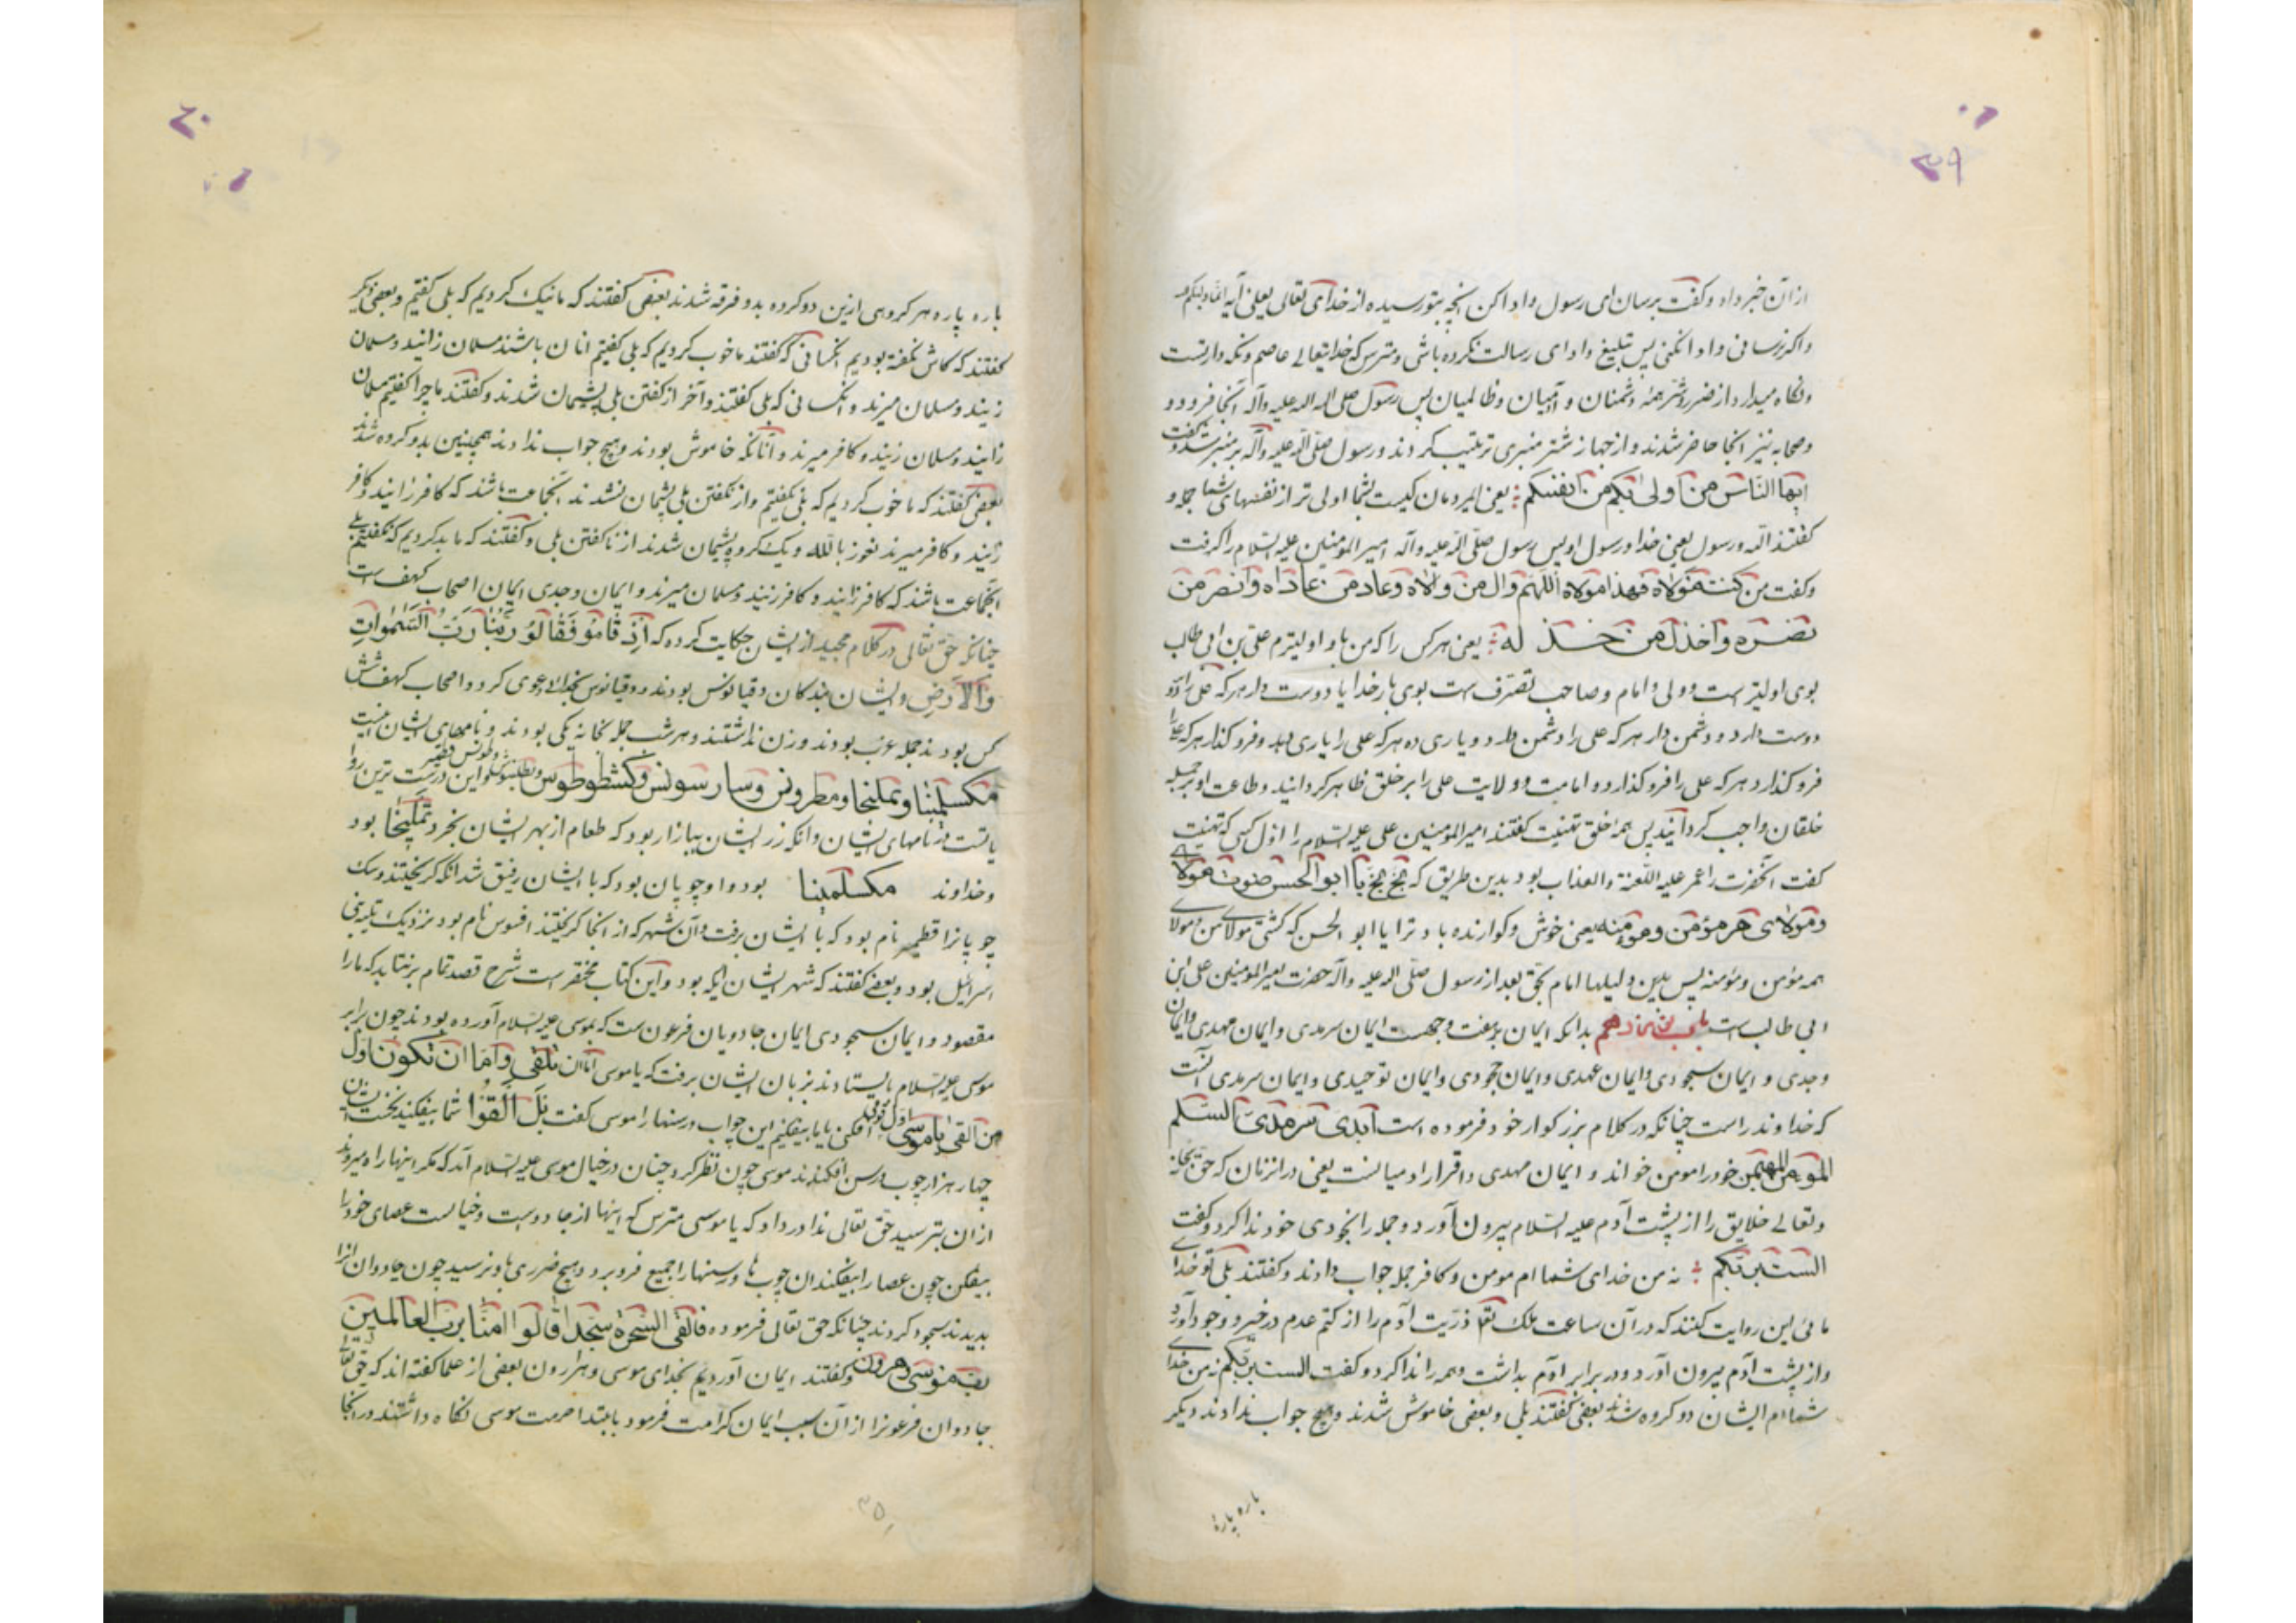 ۳۹
از آن خبر داد و گفت برسان ای رسول و ادا کن آنچه بتو رسیده از خدای تعالی یعلی آیه انما ولیکم
و اگر نرسانی و ادا نکنی پس تبلیغ و ادای رسالت نکرده باشی و مترس که خدایتعالی عاصم و نگه دار تست
و نگاه میدارد از ضرر و شر همه دشمنان و آدمیان و ظالمیان پس رسول صلی الله علیه وآله آنجا فرود و
و صحابه نیز آنجا حاضر شدند و از جهاز شتر منبری ترتیب کردند و رسول صلی الله علیه وآله بر منبر شد و گفت
ایها الناس من اولی بکم من انفسکم یعنی ایمردمان کیست بشما اولی تر از نفسهای شما جمله و
گفتند الله و رسول یعنی خدا و رسول او پس رسول صلی الله علیه وآله امیر المؤمنین علیه السلام را گرفت
و گفت من کنت مولاه فهذا مولاه اللهم وال من والاه و عاد من عاداه وانصر من
نصره واخذل من خذله یعنی هر کس را که من باو اولیترم علی بن ابی طالب
بوی اولیتر ست و ولی و امام و صاحب تصرف ست بوی بار خدایا دوست دار هر که علی را
دوست دارد و دشمن دار هر که علی را دشمن دارد و یاری ده هر که علی را یاری دهد و فرو گذار هر که علی را
فرو گذارد هر که علی را فرو گذارد و امامت و ولایت علی را بر خلق ظاهر گردانید و طاعت او بر جمله
خلقان واجب گردانید پس همه خلق تهنیت گفتند امیر المؤمنین علی علیه السلام را اول کسی که تهنیت
گفت آنحضرت را عمر علیه اللعنة والعذاب بود بدین طریق که بخ بخ یا ابو الحسن صرت مولای
و مولای هر مؤمن و مومنه یعنی خوش و گوارنده باد ترا یا ابو الحسن که گشتی مولای من و مولای
همه مؤمن و مؤمنه پس بدین دلیلها امام بحق بعد از رسول صلی الله علیه وآله حضرت امیر المومنین علی ابن
ابی طالب ست باب پانزدهم بدانکه ایمان بر هفت وجهست ایمان سرمدی و ایمان مهدی و ایمان
وجدی و ایمان سجودی و ایمان عهدی و ایمان جحودی و ایمان توحیدی و ایمان سرمدی آنست
که خداوند راست چنانکه در کلام بزرگوار خود فرموده است ابدی سرمدی السلام
المومن المهیمن خود را مومن خواند و ایمان مهدی و اقرار اد میانست یعنی در انزمان که حق سبحانه
و تعالی خلایق را از پشت آدم علیه السلام بیرون آورد و جمله را بخودی خود ندا کرد و گفت
الست بربکم نه من خدای شما ام مومن و کافر جمله جواب دادند و گفتند بلی تو خدای
مائی این روایت کنند که در آن ساعت ملک تعا ذریت آدم را از کتم عدم در خیر وجود آورد
و از پشت آدم بیرون آورد و در برابر آدم بداشت و همه را ندا کرد و گفت الست بربکم نه من خدای
شما ام ایشان دو گروه شدند بعضی گفتند بلی و بعضی خاموش شدند و هیچ جواب ندادند دیگر
باره پاره
۴۰
باره پاره هر گروهی ازین دو گروه بدو فرقه شدند بعضی گفتند که ما نیک کردیم که بلی گفتیم و بعضی دیگر
گفتند که کاش نگفته بودیم انکسانی که گفتند ما خوب کردیم که بلی گفتیم انان باشند مسلمان زانید و مسلمان
زیند و مسلمان میرند و انکسانی که بلی گفتند و آخر از گفتن بلی پشیمان شدند و گفتند ما چرا گفتیم مسلمان
زایند و مسلمان زیند و کافر میرند و آنانکه خاموش بودند و هیچ جواب ندادند همچنین بدو گروه شدند
بعضی گفتند که ما خوب کردیم که بلی نگفتیم و از نگفتن بلی پشیمان نشدند انجماعت باشند که کافر زایند و کافر
زیند و کافر میرند نعوذ بالله و یک گروه پشیمان شدند از ناگفتن بلی و گفتند که ما بد کردیم که نگفتیم بلی
انجماعت باشند که کافر زایند و کافر زیند و مسلمان میرند و ایمان وجدی ایمان اصحاب کهف ست
چنانکه حق تعالی در کلام مجید از ایشان حکایت کرده که اذ قاموا فقالوا ربنا رب السموات
والارض و ایشان بندگان دقیانوس بودند و دقیانوس بخدائی دعوی کرد و اصحاب کهف شش
کس بودند جمله عزب بودند و زن نداشتند و هر شب جمله بخانه یکی بودند و نامهای ایشان اینست
مکسلمینا و یملیخا و مطرونس و سارسونس و کشطوطوس و این درست ترین روا
یاتست در نامهای ایشان و انکه زر ایشان ببازار بود که طعام از بهر ایشان بخرد یملیخا بود
و خداوند مکسلمینا بود و او چوپان بود که با ایشان رفیق شد انکه گریختند و سگ
چوپانرا قطمیر نام بود که با ایشان برفت و آن شهر که از انجا گریختند افسوس نام بود نزدیک بیه بنی
اسرائیل بود و بعضی گفتند که شهر ایشان ایله بود و این کتاب مختصر ست شرح قصه تمام بر نتابد که ما را
مقصود و ایمان سجودی ایمان جادویان فرعون ست که بموسی علیه السلام آورده بودند چون برابر
موسی علیه السلام بایستادند بزبان ایشان برفت که یا موسی اما ان تلقی و اما ان نکون اول
من القی یا موسی اول تو می افکنی یا ما بیفکنیم این چوب و رسنها را موسی گفت بل القوا شما بیفکنید نخست
چهار هزار چوب و رسن افکندند موسی چون نظر کرد چنان در خیال موسی علیه السلام آمد که مگر اینها راه میروند
از ان بترسید حق تعالی ندا در داد که یا موسی مترس که اینها از جادوست و خیالست عصای خود را
بیفکن چون عصا را بیفکند ان چوب ها و رسنها را جمیع فرو برد و هیچ ضرری باو نرسید چون جادوان انرا
بدیدند سجود کردند چنانکه حق تعالی فرموده فالقی السحرة سجدا قالوا امنا برب العالمین
رب موسی و هرون و گفتند ایمان آوردیم بخدای موسی و هارون بعضی از علما گفته اند که حق تعالی
جادوان فرعونرا از آن سبب ایمان کرامت فرمود بابتدا حرمت موسی نگاه داشتند در انجا